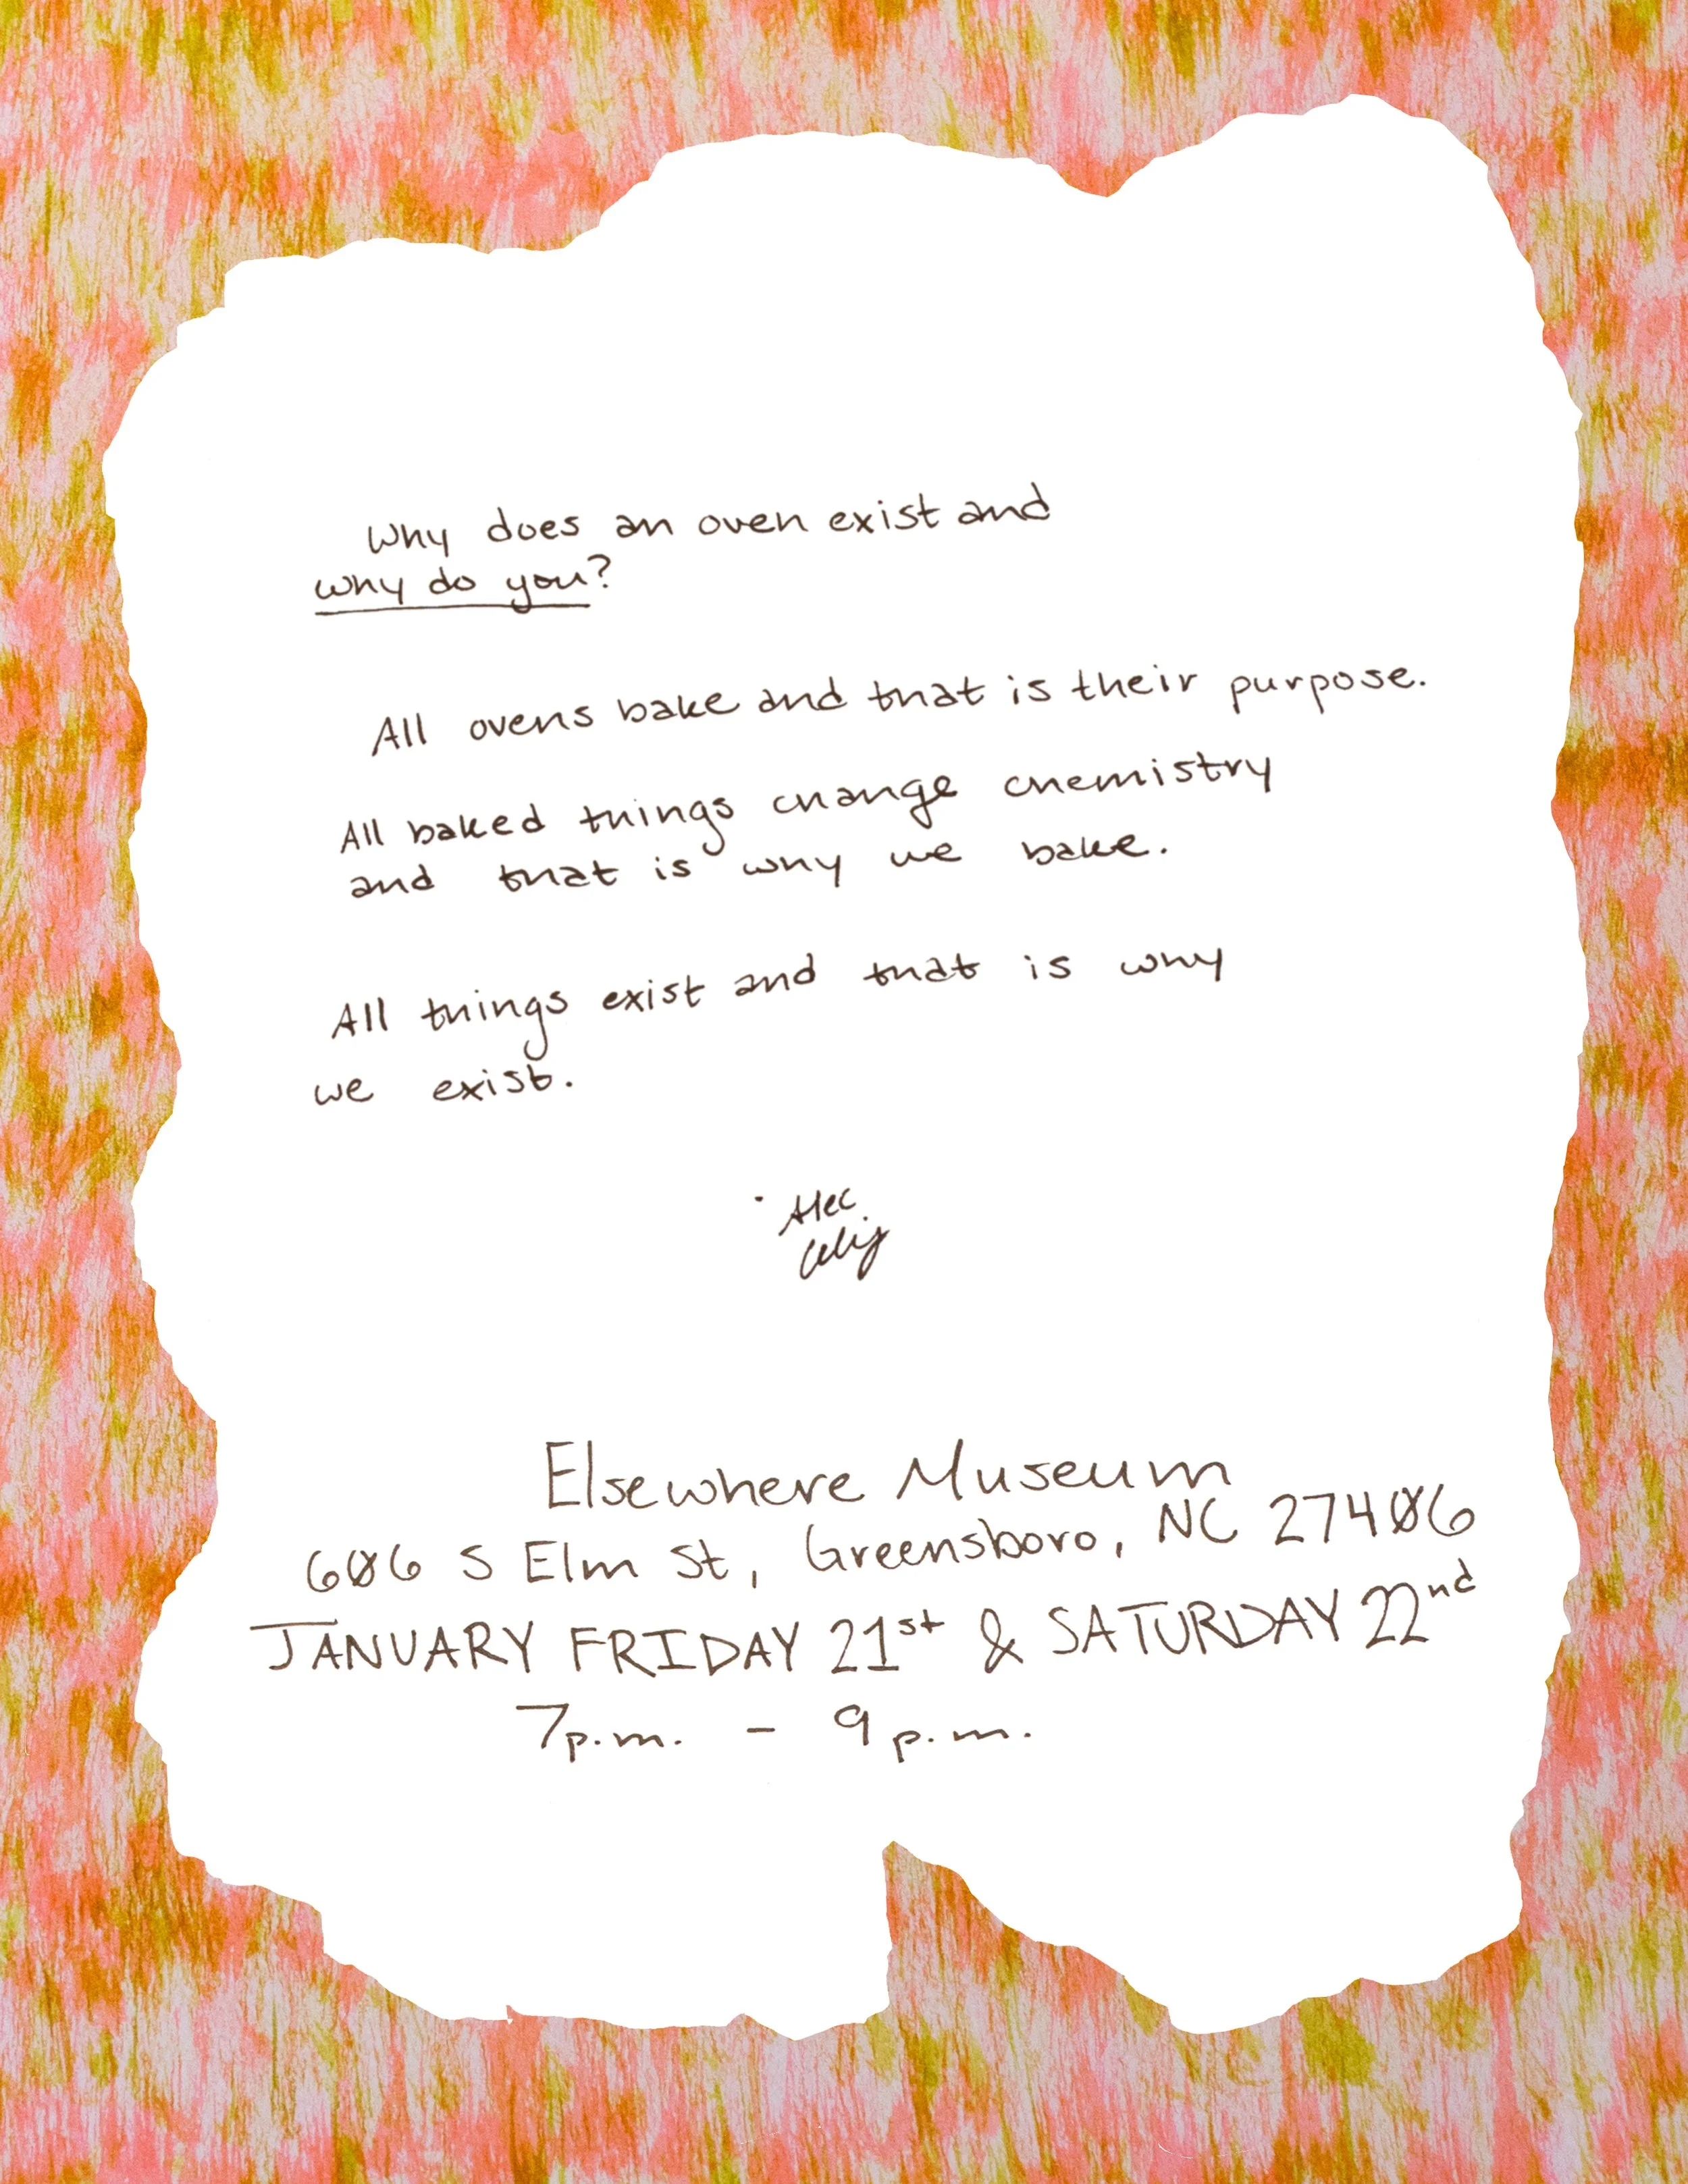 Why does an oven exist and
why do you?
All ovens bake and that is their purpose.
All baked things change chemistry
and that is why we bake.
All things exist and that is why
we exist.
Alec
Elsewhere Museum
606 S Elm St, Greensboro, NC 27406
JANUARY FRIDAY 21st & SATURDAY 22nd
7p.m. - 9p.m.